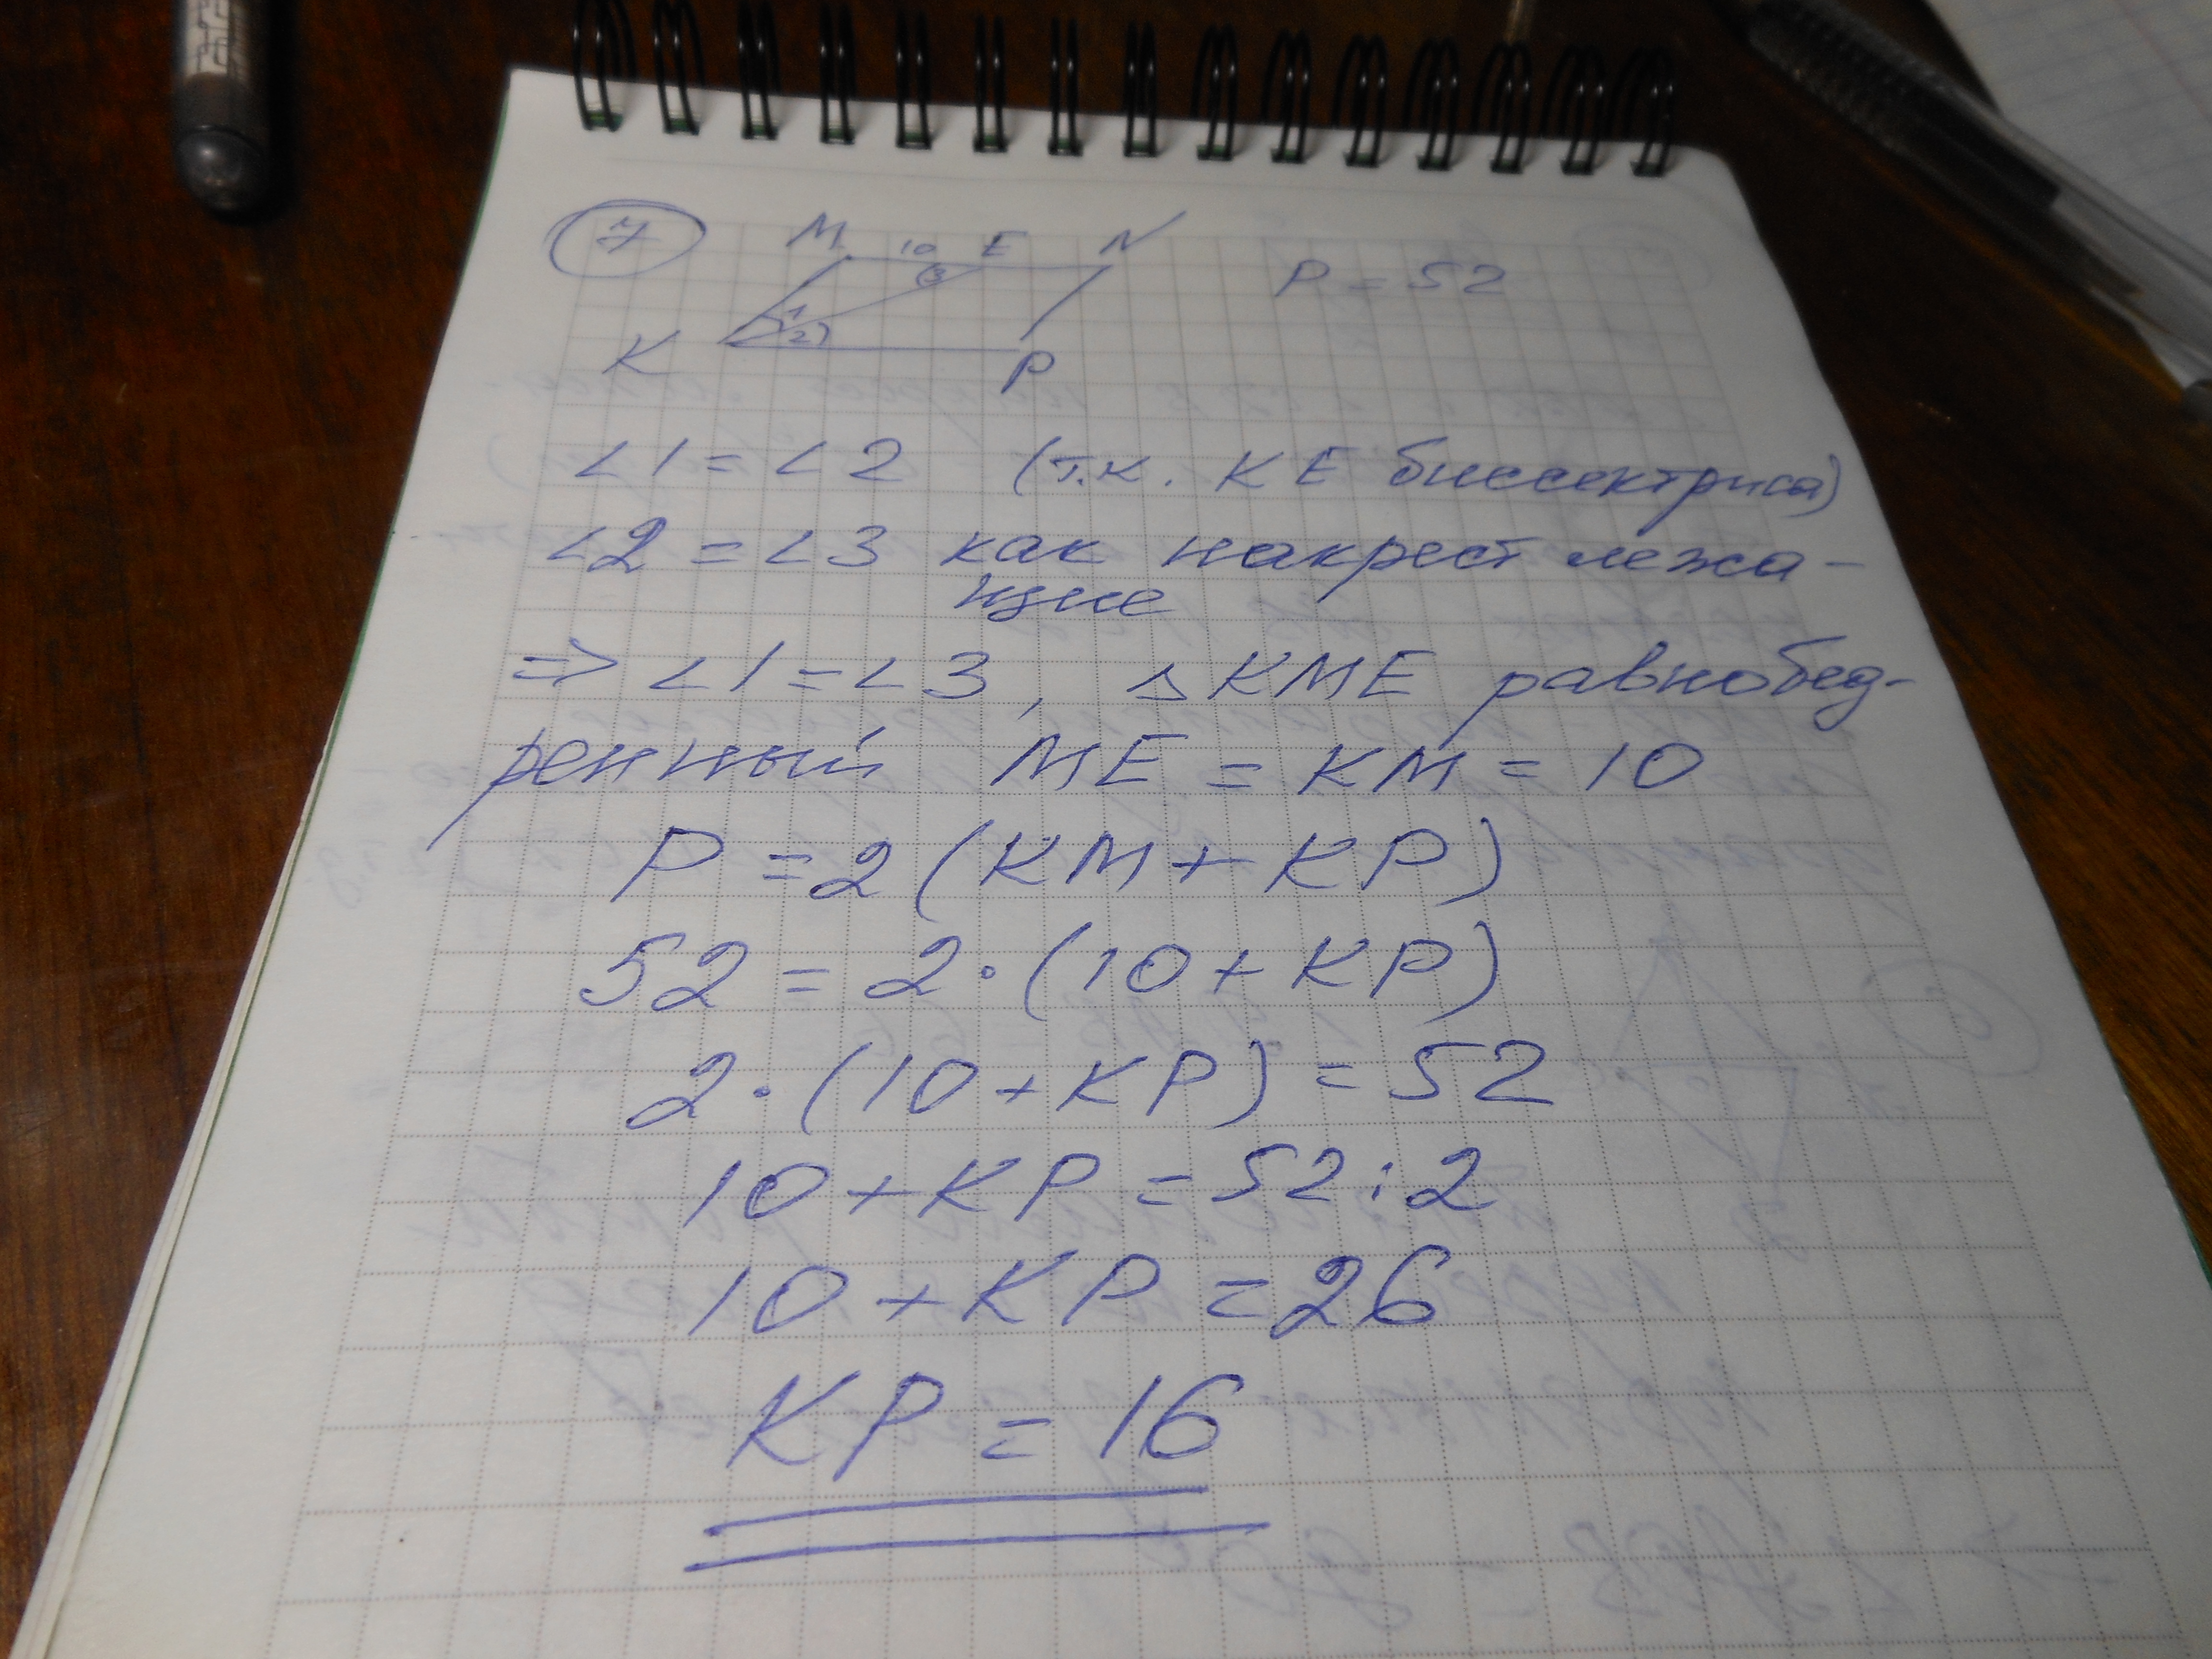 7
M 10 E N
3
1
2
K P
P = 52
∠1 = ∠2 (т.к. KE биссектриса)
∠2 = ∠3 как накрест лежа-
щие
=> ∠1 = ∠3, △KME равнобед-
ренный ME = KM = 10
P = 2 (KM + KP)
52 = 2 · (10 + KP)
2 · (10 + KP) = 52
10 + KP = 52 : 2
10 + KP = 26
KP = 16